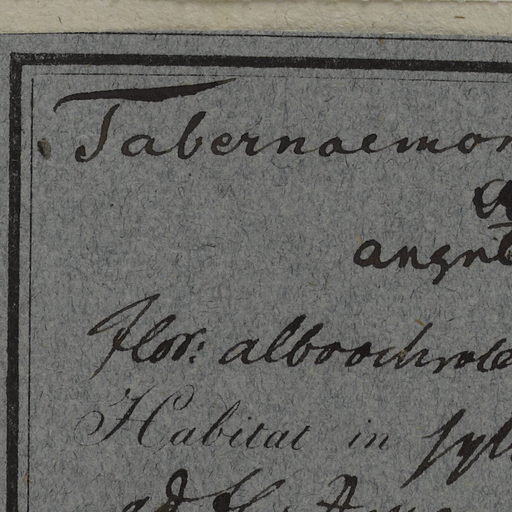 Tabernaemon
angu
Flor: alboochrole
Habitat in syl
ad fl.